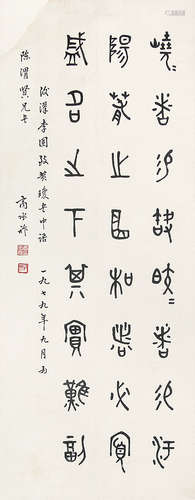 嶢〻者易缺皎〻者易汙
陽春之曲和者必寡
盛名之下其實難副
後漢李固致黃瓊書中語 一九七九年九月為
陳渭賢兄書 商承祚